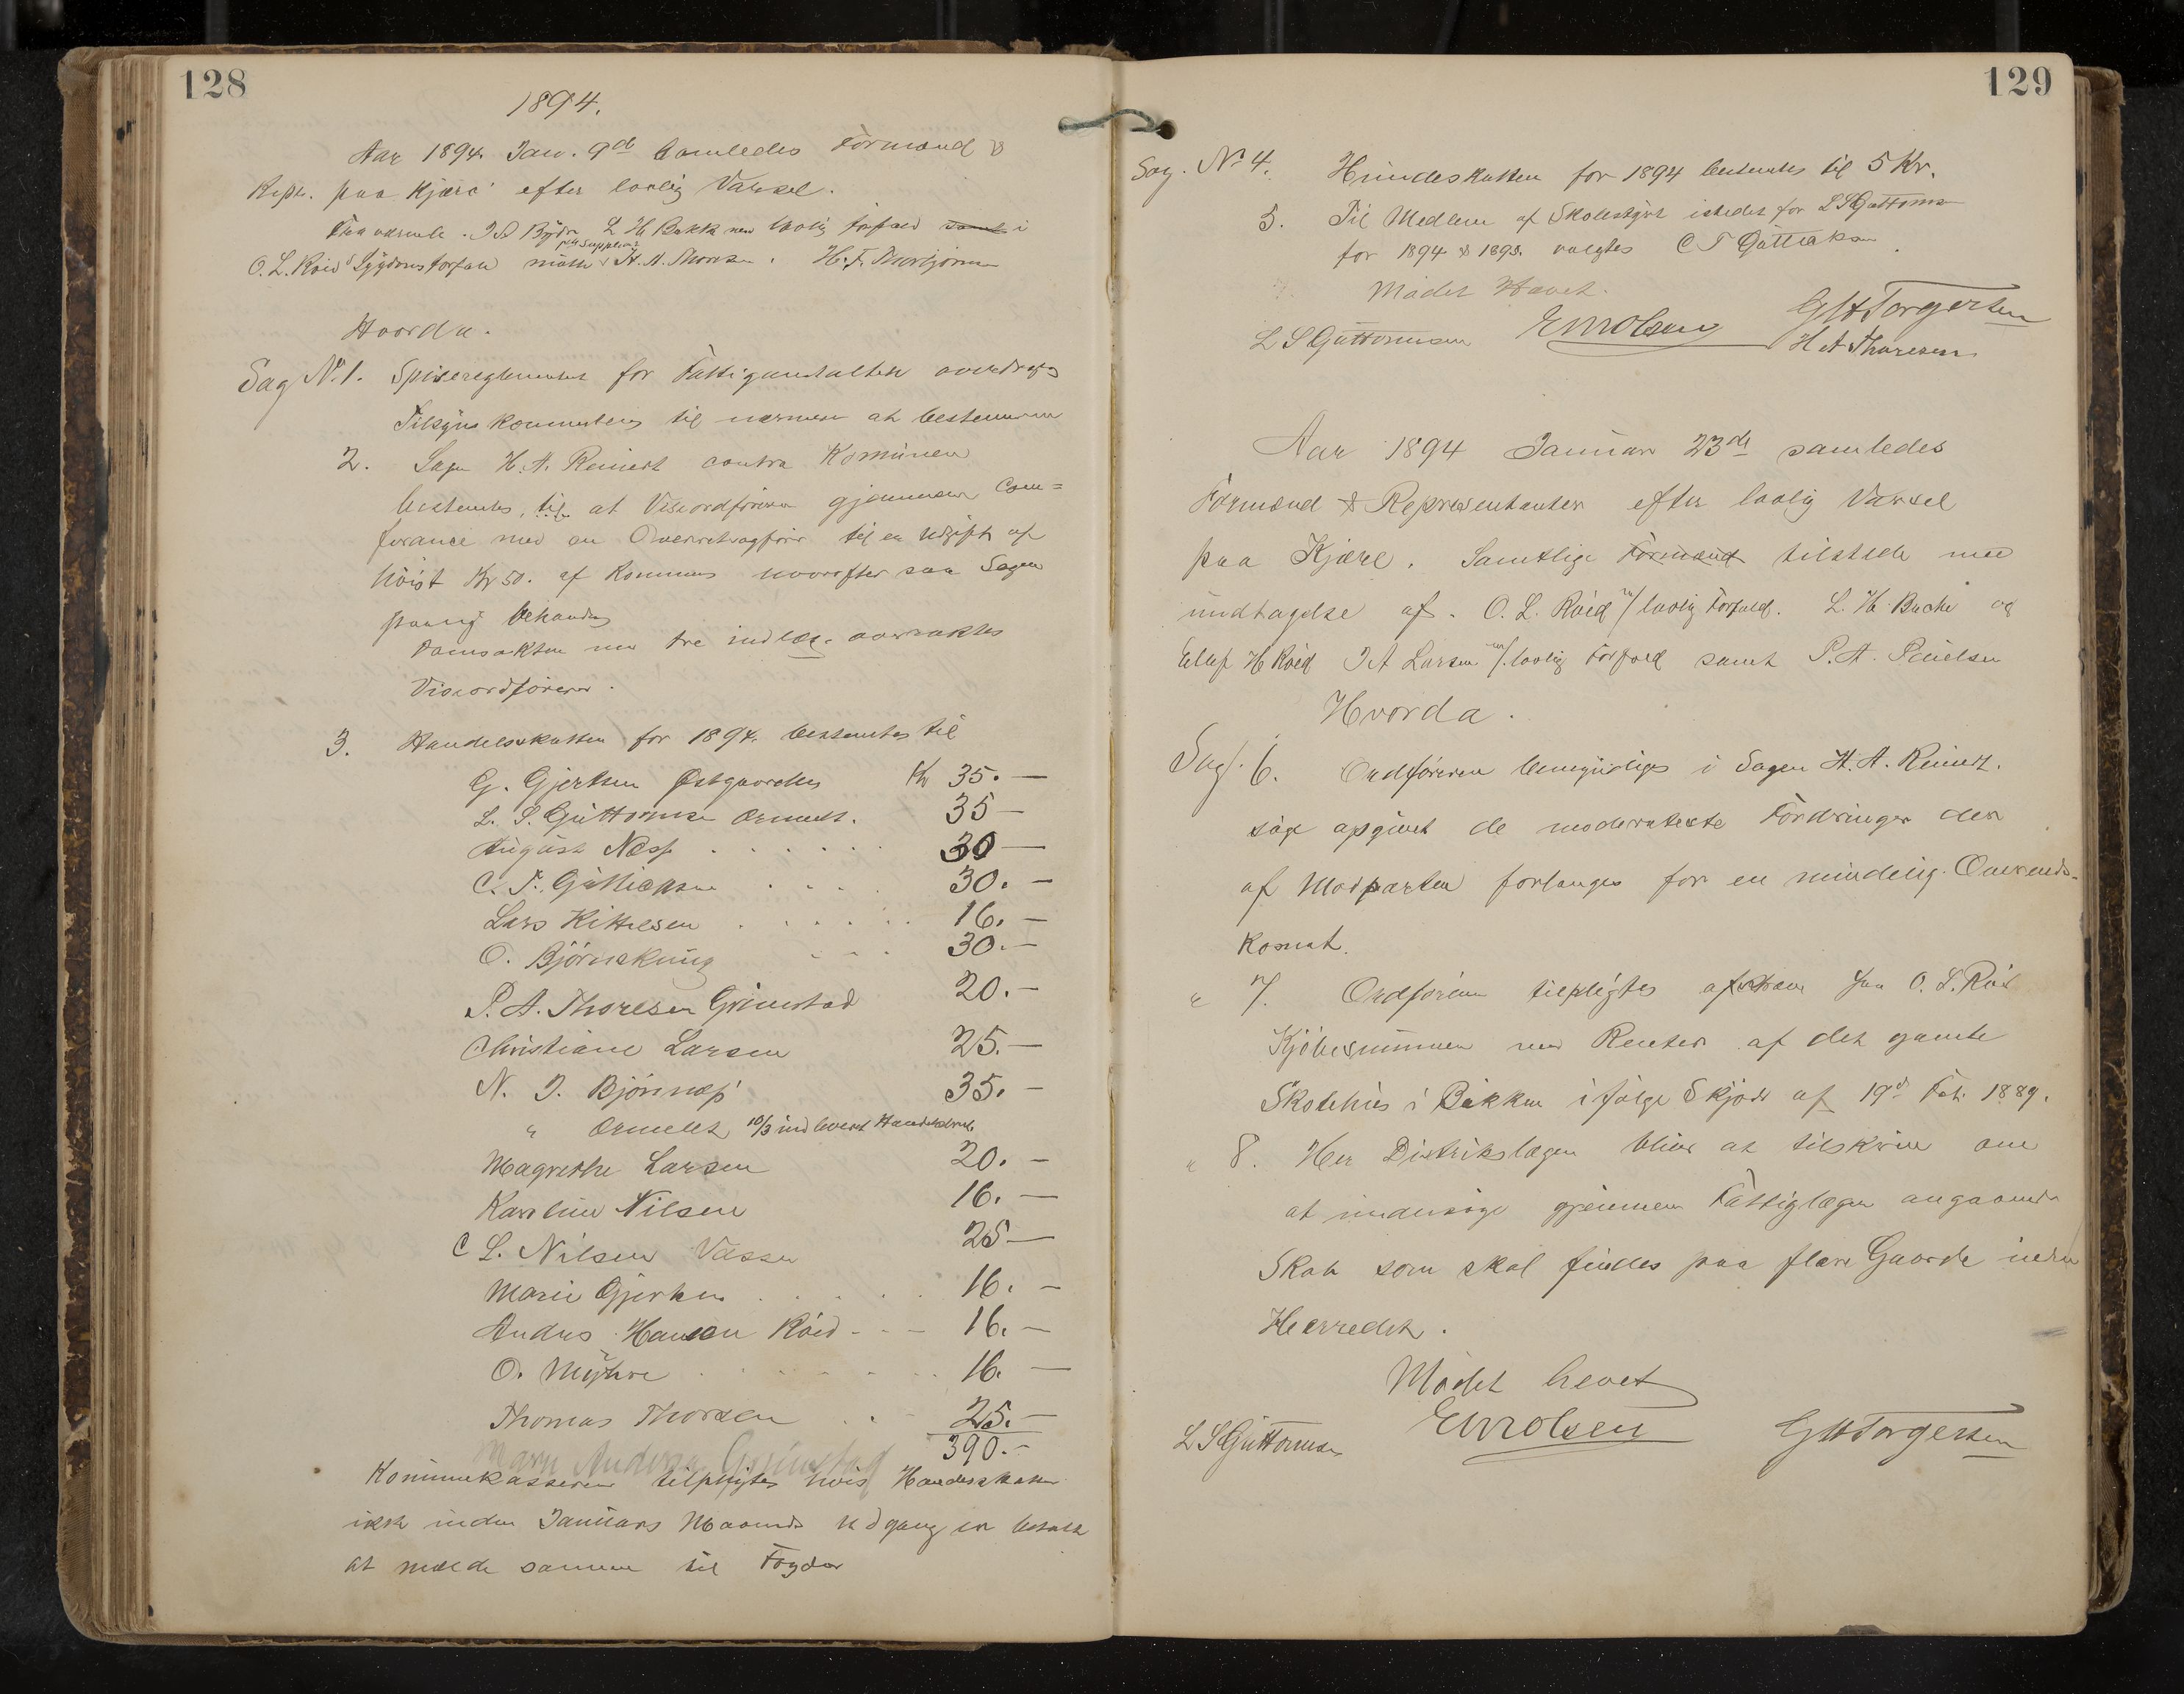 128
1894.
Aar 1894. Jan. 9de samledes Formænd &
Repr. paa Kjære efter lovlig Varsel.
Fraværende. L H Bakke lovlig Forfald samt i
O. L. Røed's Sygdomsforfald mødte H. A. Thoresen. H. F. Thorbjørnsen
Hvorda.
Sag No. 1. Spisereglementet for Fattiganstalten overdroges
Tilsynskommiteen til nærmere at bestemme
2. Sagen H. A. Reinert contra Komunen
bestemtes, til at Viseordføreren gjennem Con=
ferance med en Overretsagfører til en Udgift af
høist Kr 50. af Kommunens hvorefter saa Sagen
paany behandles
Domsakten med tre indlæg. overraktes
Viseordføreren.
3. Handelsskatten for 1894. bestemtes til
G. Gjertsen Østgaarden Kr 35. —
L. S. Guttormsen Ormelet. 35 —
August Næss . . . . . . 30 —
C. T. Guttiaksen . . . . 30. —
Lars Kittelsen . . . . . . 16. —
O. Bjørneskung . . . 30. —
P. A. Thoresen Grimstad 20. —
Christiane Larsen 25. —
N. J. Bjørnnæs 35. —
" Ormelet 10/3 indleveret Handelsbrev
Magrethe Larsen 20. —
Karoline Nilsen 16. —
C L. Nilsen Vasser 25 —
Marie Gjertsen . . . . . 16. —
Andres Hansen Røed - - - 16. —
O. Myhre . . . . . . 16. —
Thomas Thorsen . . - 25. —
390. -
Marn Andersen Grimstad
Kommunekassereren tilpligtes hvis Handelsskatten
ikke inden Januars Maaneds Udgang er betalt
at melde samme til Fogden
129
Sag. No 4. Hundeskatten for 1894 bestemtes til 5 Kr.
5. Til Medlem af Skolestyret istedet for L S Guttormsen
for 1894 & 1895. valgtes C T Guttiaksen.
Mødet Hævet.
L S Guttormsen EmOlsen GHTorgersen
H A Thoresen
Aar 1894 Januar 23de samledes
Formænd & Representanter efter lovlig Varsel
paa Kjære. Samtlige Formænd tilstede med
undtagelse af. O. L. Røed m/ lovlig Forfald. L. H. Bache og
Ellef H Røed J A Larsen m/. lovlig Forfald samt P. A. Paulsen
Hvorda.
Sag. 6. Ordføreren bemyndiges i Sagen H. A. Reinert.
søge opgivet de moderateste Fordringer der
af Modparten forlanges for en mindelig Overens-
komst.
" 7. Ordføreren tilpligtes afkræve Fra O. L. Røed
Kjøbesummen med Renter af det gamle
Skolehus i Bakken ifølge Skjøde af 19de Feb. 1889.
" 8. Her Distrikslægen bliver at tilskrive om
at undersøge gjennem Fattiglægen angaaende
Skab som skal findes paa flere Gaarde inden
Herredet.
Mødet hevet
L S Guttormsen EmOlsen GHTorgersen